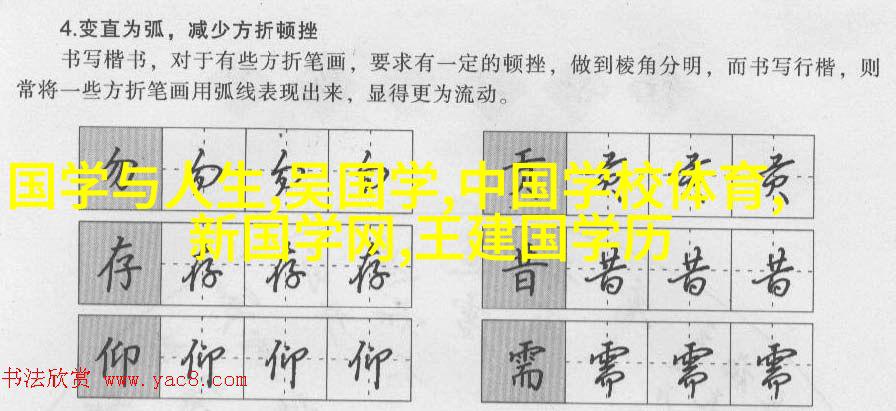 4.变直为弧，减少方折顿挫
书写楷书，对于有些方折笔画，要求有一定的顿挫，做到棱角分明，而书写行楷，则
常将一些方折笔画用弧线表现出来，显得更为流动。
国学与人生,吴国学,中国学校体育,
新国学网,王建国学历
存 存 存 存 昔 昔 昔 昔
仰 仰 仰 仰 需 需 需 需
书法欣赏 www.yac8.com